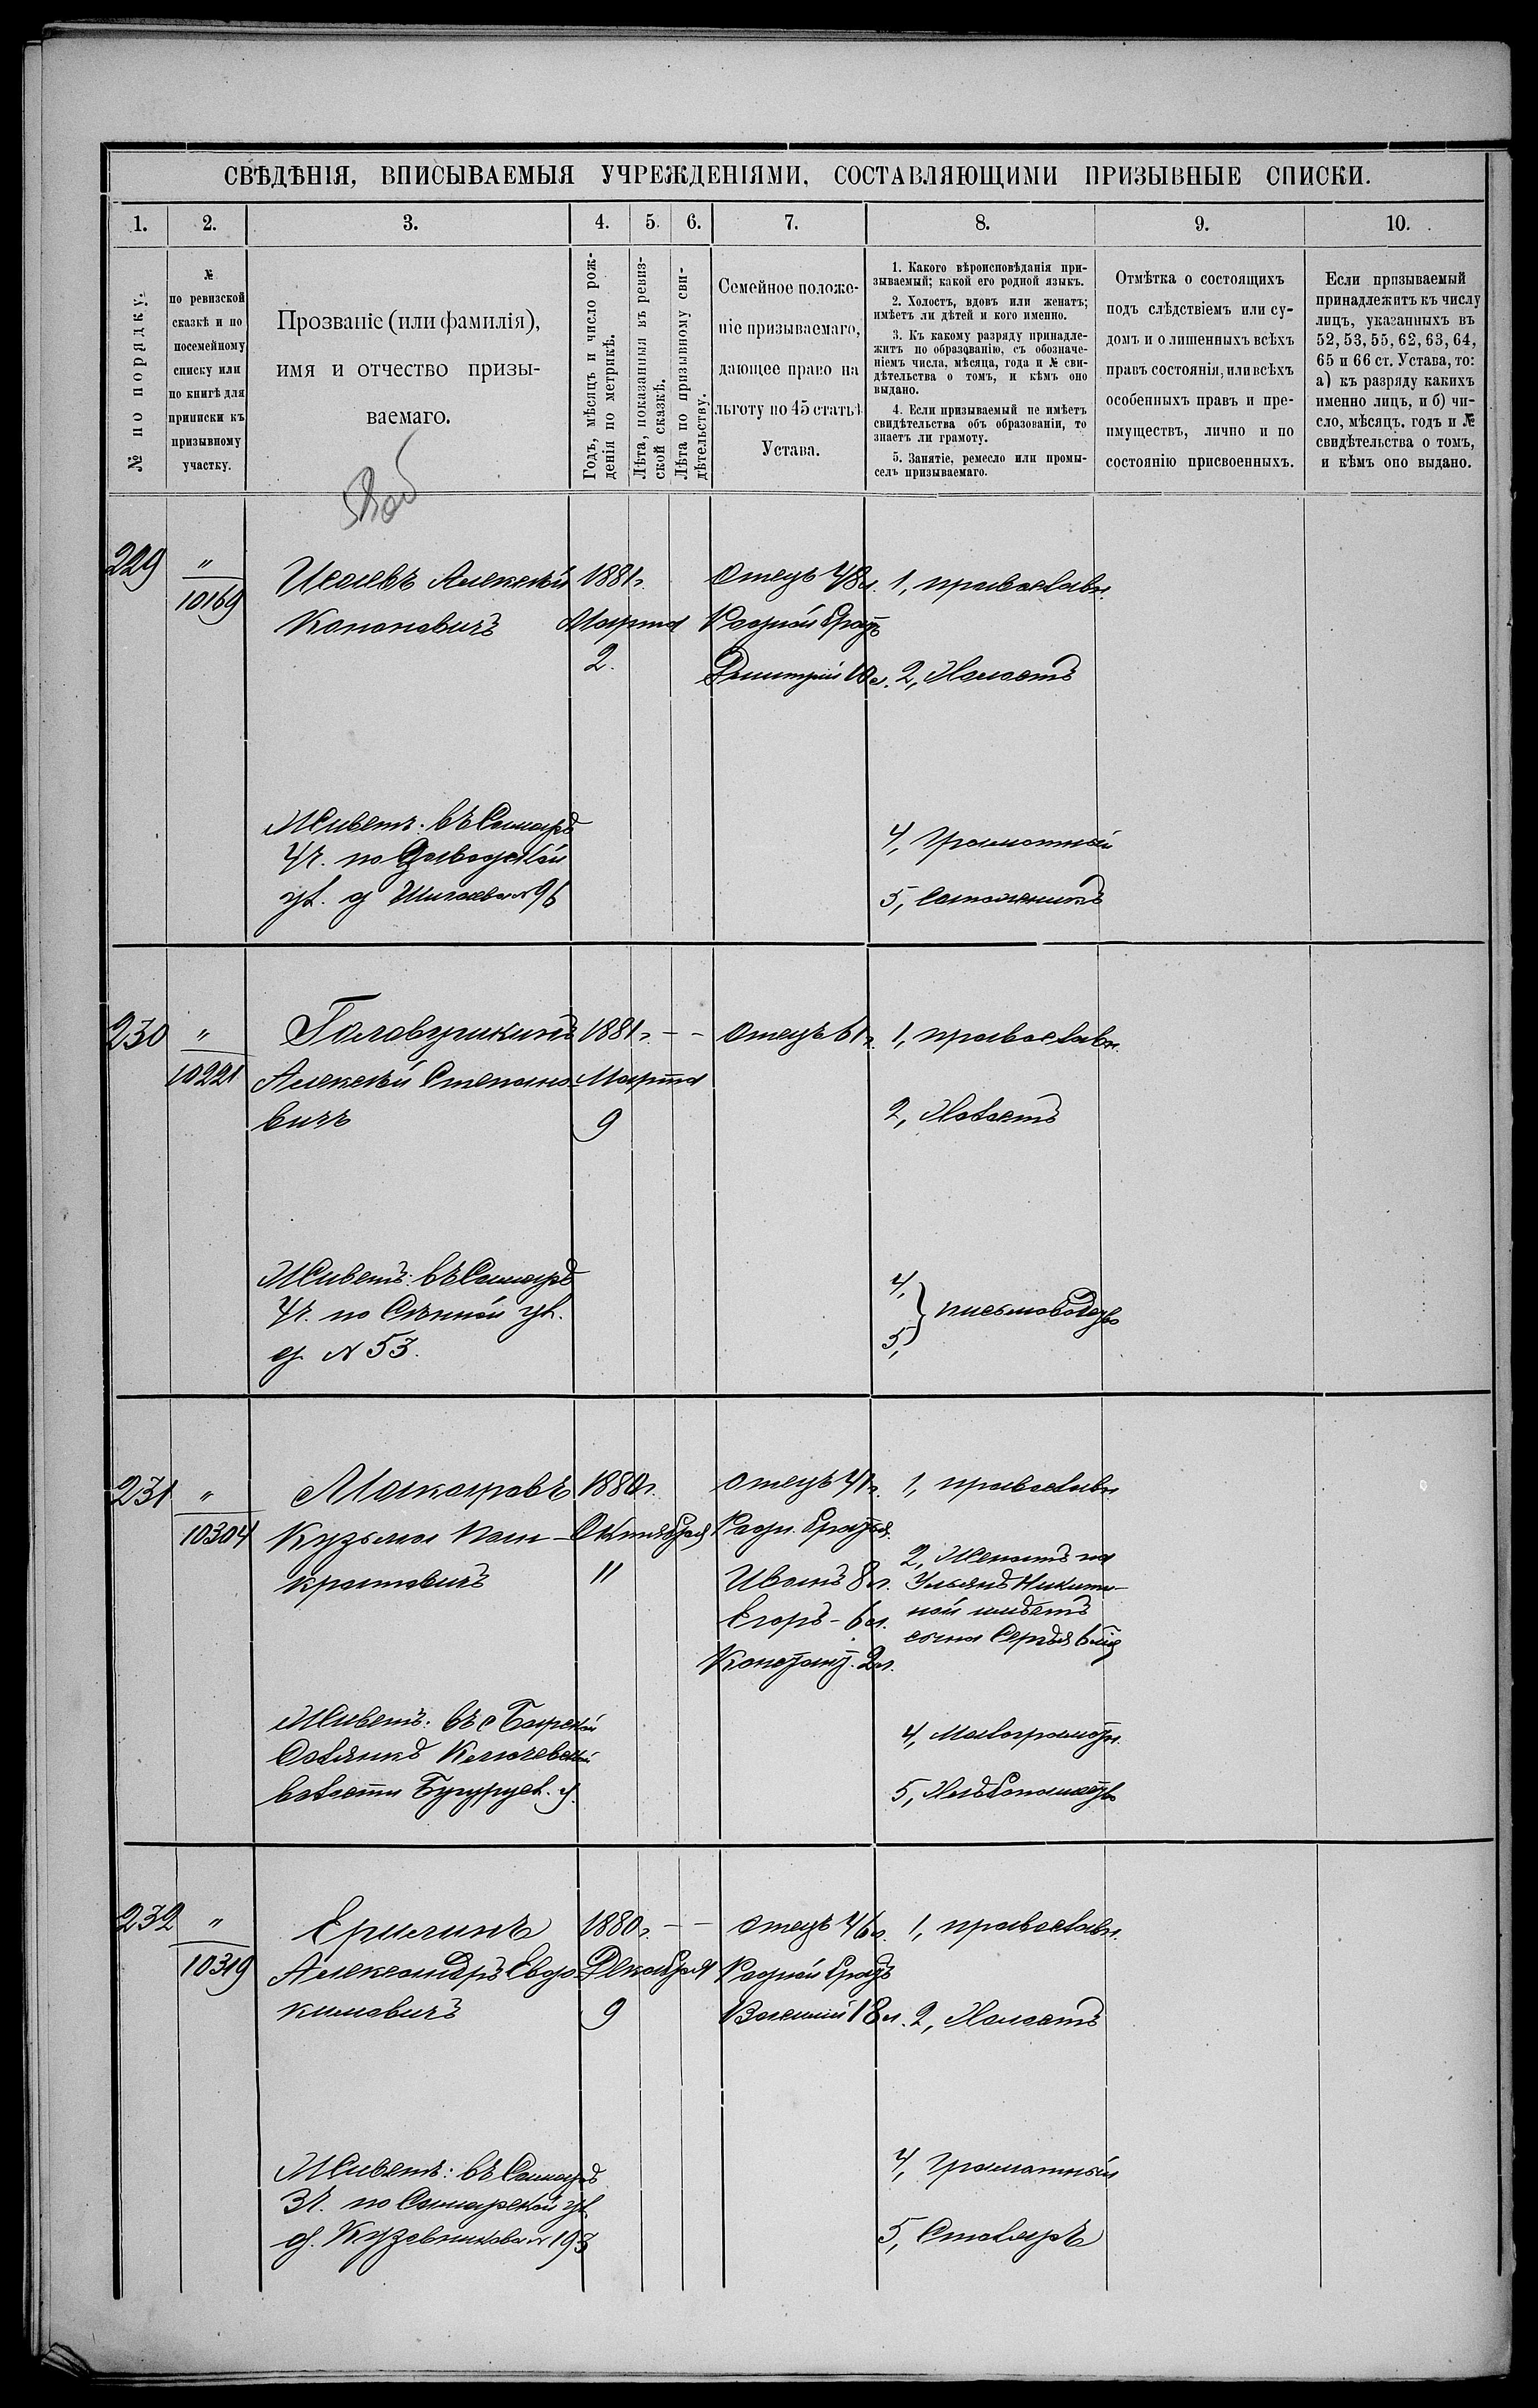 СВѢДѢНІЯ, ВПИСЫВАЕМЫЯ УЧРЕЖДЕНІЯМИ, СОСТАВЛЯЮЩИМИ ПРИЗЫВНЫЕ СПИСКИ.
1.
2.
3.
4.
5.
6.
7.
8.
9.
10.
№ по порядку.
№
по ревизской
сказкѣ и по
посемейному
списку или
по книгѣ для
приписки къ
призывному
участку.
Прозваніе (или фамилія),
имя и отчество призы-
ваемаго.
Годъ, мѣсяцъ и число рож-
денія по метрикѣ.
Лѣта, показанныя въ ревиз-
ской сказкѣ.
Лѣта по призывному сви-
дѣтельству.
Семейное положе-
ніе призываемаго,
дающее право на
льготу по 45 статьѣ
Устава.
1. Какого вѣроисповѣданія при-
зываемый; какой его родной языкъ.
2. Холостъ, вдовъ или женатъ;
имѣетъ ли дѣтей и кого именно.
3. Къ какому разряду принадле-
житъ по образованію, съ обозначе-
ніемъ числа, мѣсяца, года и № сви-
дѣтельства о томъ, и кѣмъ оно
выдано.
4. Если призываемый не имѣетъ
свидѣтельства объ образованіи, то
знаетъ ли грамоту.
5. Занятіе, ремесло или промы-
селъ призываемаго.
Отмѣтка о состоящихъ
подъ слѣдствіемъ или су-
домъ и о лишенныхъ всѣхъ
правъ состоянія, или всѣхъ
особенныхъ правъ и пре-
имуществъ, лично и по
состоянію присвоенныхъ.
Если призываемый
принадлежитъ къ числу
лицъ, указанныхъ въ
52, 53, 55, 62, 63, 64,
65 и 66 ст. Устава, то:
а) къ разряду какихъ
именно лицъ, и б) чи-
сло, мѣсяцъ, годъ и №
свидѣтельства о томъ,
и кѣмъ оно выдано.
229
"
10169
Исаевъ Алексѣй
Кононовичъ
1881 г.
Марта
2.
Отецъ 48 л.
Родной братъ
Дмитрій 10 л.
1, православн.
2, Холостъ
Живетъ: въ Самарѣ
4 ч. по Заводской
ул. д Шигаева № 96
4, Грамотный
5, Сапожникъ
230
"
10221
Головушкинъ
Алексѣй Степано-
вичъ
1881 г. - -
Марта
9
Отецъ 61 г.
1, православн.
2, Холостъ
Живетъ: въ Самарѣ
4 ч. по Сѣнной ул.
д. № 53.
4,
5, } письмоводство
231
"
10304
Макаровъ
Кузьма Пан-
кратовичъ
1880 г.
Октября
11
Отецъ 41 г.
Родн. братья.
Иванъ 8 л.
Егоръ - 6 л.
Констант. 2 л.
1, православн.
2, Женатъ на
Ульянѣ Никити-
ной имѣетъ
сына Сергѣя 6 мѣс
Живетъ: въ с Боярской
Солянкѣ Ключевской
волости Бугурусл. у.
4, Малограмотн.
5, Хлѣбопашество
232
"
10319
Ерилинъ
Александръ Евдо-
кимовичъ
1880 г. - -
Декабря
9
Отецъ 46 л.
Родной братъ
Василій 18 л.
1, православн.
2, Холостъ
Живетъ: въ Самарѣ
3 ч. по Самарской ул.
д. Кузовникова № 193
4, Грамотный
5, Столяръ